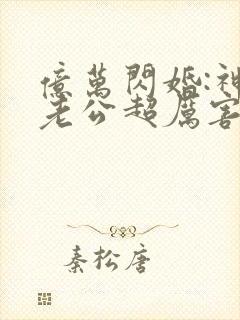 億萬閃婚:神
老公超厲害
秦松唐